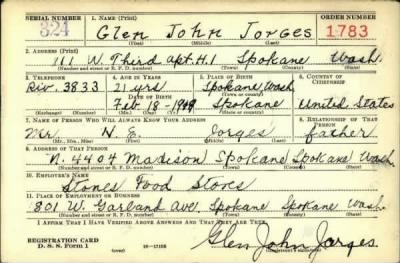 SERIAL NUMBER 1. NAME (Print) ORDER NUMBER
324 Glen John Jorges 1783
(First) (Middle) (Last)
2. ADDRESS (Print)
111 W. Third apt. H.1 Spokane Wash.
(Number and street or R. F. D. number) (Town) (County) (State)
3. TELEPHONE 4. AGE IN YEARS 5. PLACE OF BIRTH 6. COUNTRY OF CITIZENSHIP
Riv. 3833 21 yrs Spokane, Wash
DATE OF BIRTH
Feb 18-1919 Spokane United States
(Exchange) (Number) (Mo.) (Day) (Yr.) (State or country)
7. NAME OF PERSON WHO WILL ALWAYS KNOW YOUR ADDRESS 8. RELATIONSHIP OF THAT PERSON
Mr. N. E. Jorges father
(Mr., Mrs., Miss) (First) (Middle) (Last)
9. ADDRESS OF THAT PERSON
N. 4404 Madison Spokane Spokane Wash.
(Number and street or R. F. D. number) (Town) (County) (State)
10. EMPLOYER'S NAME
Stones Food Stores
11. PLACE OF EMPLOYMENT OR BUSINESS
801 W. Garland Ave. Spokane Spokane Wash
(Number and street or R. F. D. number) (Town) (County) (State)
I AFFIRM THAT I HAVE VERIFIED ABOVE ANSWERS AND THAT THEY ARE TRUE.
REGISTRATION CARD
D. S. S. Form 1 (over) Glen John Jorges